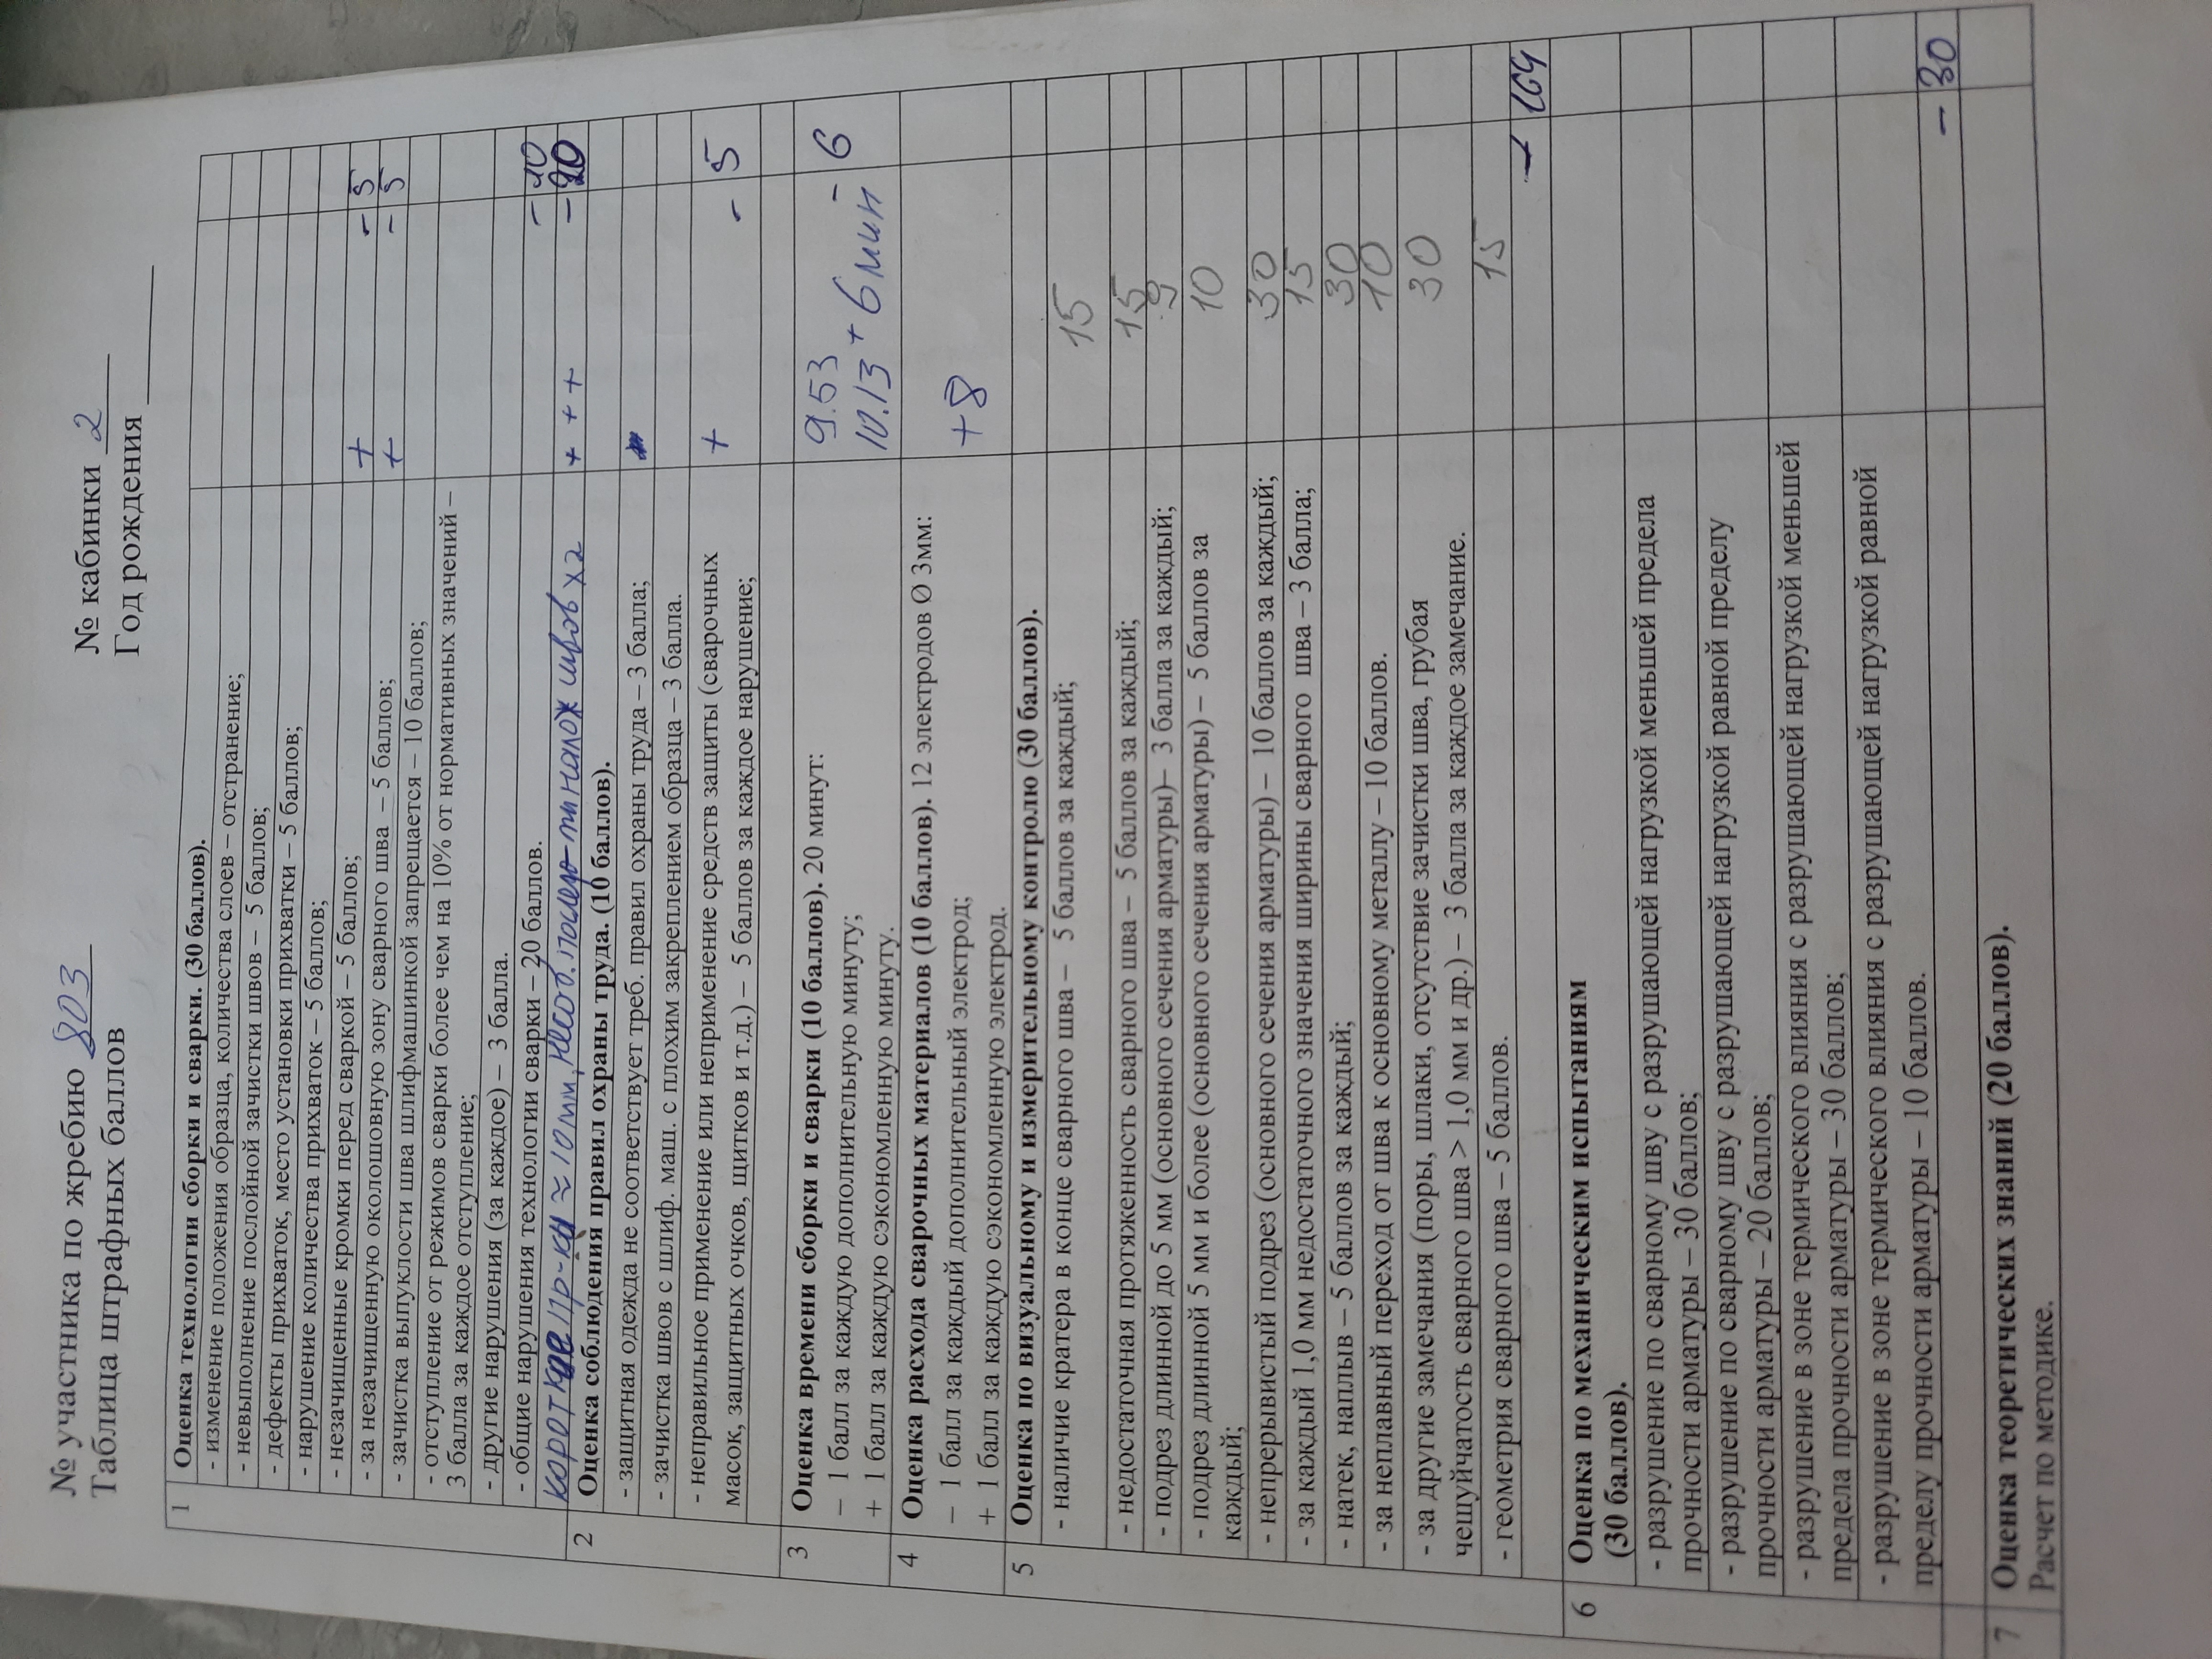 № участника по жребию 803
№ кабинки 2
Таблица штрафных баллов
Год рождения
1 Оценка технологии сборки и сварки. (30 баллов).
- изменение положения образца, количества слоев – отстранение;
- невыполнение послойной зачистки швов – 5 баллов;
- дефекты прихваток, место установки прихватки – 5 баллов;
- нарушение количества прихваток – 5 баллов;
- незачищенные кромки перед сваркой – 5 баллов; + - 5
- за незачищенную околошовную зону сварного шва – 5 баллов; + - 5
- зачистка выпуклости шва шлифмашинкой запрещается – 10 баллов;
- отступление от режимов сварки более чем на 10% от нормативных значений –
3 балла за каждое отступление;
- другие нарушения (за каждое) – 3 балла.
- общие нарушения технологии сварки – 20 баллов. - 10
короткие пр-ки ≈ 10 мм, несоб. налож швов х2 + + + - 20
2 Оценка соблюдения правил охраны труда. (10 баллов).
- защитная одежда не соответствует треб. правил охраны труда – 3 балла;
- зачистка швов с шлиф. маш. с плохим закреплением образца – 3 балла.
- неправильное применение или неприменение средств защиты (сварочных
масок, защитных очков, щитков и т.д.) – 5 баллов за каждое нарушение; + - 5
3 Оценка времени сборки и сварки (10 баллов). 20 минут: 9.53
– 1 балл за каждую дополнительную минуту; - 6
+ 1 балл за каждую сэкономленную минуту. 10.13 + 6 мин
4 Оценка расхода сварочных материалов (10 баллов). 12 электродов Ø 3мм:
– 1 балл за каждый дополнительный электрод; +8
+ 1 балл за каждую сэкономленную электрод.
5 Оценка по визуальному и измерительному контролю (30 баллов).
- наличие кратера в конце сварного шва – 5 баллов за каждый; 15
- недостаточная протяженность сварного шва – 5 баллов за каждый; 15
- подрез длинной до 5 мм (основного сечения арматуры)– 3 балла за каждый; 9
- подрез длинной 5 мм и более (основного сечения арматуры) – 5 баллов за
каждый; 10
- непрерывистый подрез (основного сечения арматуры) – 10 баллов за каждый; 30
- за каждый 1,0 мм недостаточного значения ширины сварного шва – 3 балла; 15
- натек, наплыв – 5 баллов за каждый; 30
- за неплавный переход от шва к основному металлу – 10 баллов. 10
- за другие замечания (поры, шлаки, отсутствие зачистки шва, грубая
чешуйчатость сварного шва > 1,0 мм и др.) – 3 балла за каждое замечание. 30
- геометрия сварного шва – 5 баллов. 15
- 164
6 Оценка по механическим испытаниям
(30 баллов).
- разрушение по сварному шву с разрушающей нагрузкой меньшей предела
прочности арматуры – 30 баллов;
- разрушение по сварному шву с разрушающей нагрузкой равной пределу
прочности арматуры – 20 баллов;
- разрушение в зоне термического влияния с разрушающей нагрузкой меньшей
предела прочности арматуры – 30 баллов;
- разрушение в зоне термического влияния с разрушающей нагрузкой равной
пределу прочности арматуры – 10 баллов.
- 30
7 Оценка теоретических знаний (20 баллов).
Расчет по методике.